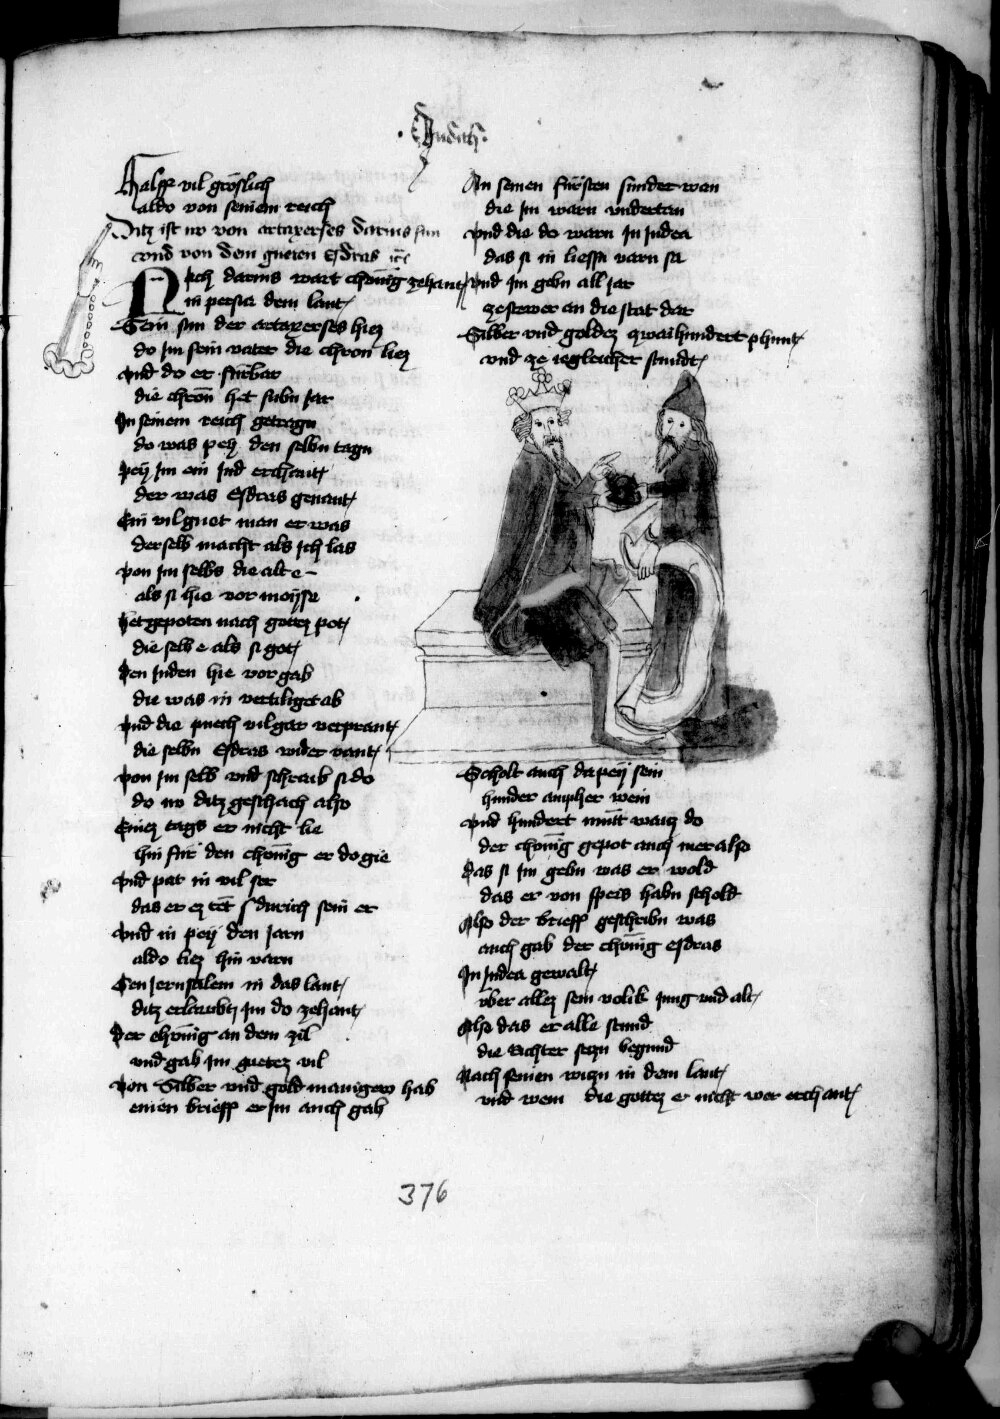 Judith
Half vil gröslich
aldo von seinem reich
Ditz ist no von artaxerses darius sun
vnd von dem gueten Esdras
Nach darius wart chönig zehant
in persia dem lant
Sein sun der artaxerses hiez
do im sein vater die chron liez
vnd do er fürbar
die chron het sibn jar
In seinem reich getragn
do was pey den selbn tagn
pey im ein Jud erchant
der was Esdras genant
Ein vil guot man er was
derselb macht als ich las
von im selbs die alt e
als si hie vor moyse
het gepoten nach gottez pot
die selb e als si got
den Juden hie vor gab
die was in vertiliget ab
vnd die puech vil gar verprant
die selbn Esdras wider vant
von im selb vnd schraib si do
do no ditz geschach also
Einez tags er nicht lie
hin für den chönig er do gie
vnd pat in vil ser
das er ez tet durich sein er
vnd in pey den jarn
aldo liez hin varn
Gen Jerusalem in das lant
ditz erlaubt im do zehant
der chönig an dem zil
vnd gab im guetez vil
von Silber vnd gold maniger hab
einen brieff er im auch gab
An seinen fürsten sunder wan
die im warn vndertan
vnd die do warn in Judea
das si in liessn varn sa
vnd im gebn all jar
ze stewer an die stat dar
Silber vnd goldez zwaihundert phunt
vnd ze iegleicher stundt
Scholt auch da pey sein
hunder ampher wein
vnd hundert mütt waitz do
der chönig gepot auch mer also
das si im gebn was er wold
das er von speis habn schold
Also der brieff geschribn was
auch gab der chönig esdras
In Judea gewalt
vber allez sein volik jung vnd alt
Also das er alle stund
die richter setzn begund
Nach seinen witzn in dem lant
vnd wem die gottez e nicht wer erchant
376